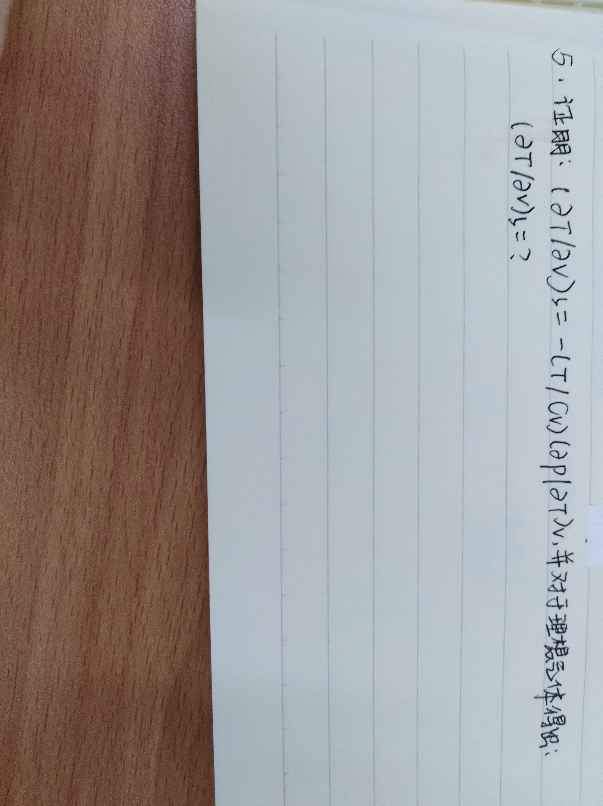 5. 证明: (∂T/∂V)s = -(T/Cv)(∂p/∂T)v, 并对于理想气体得出:
(∂T/∂V)s = ?